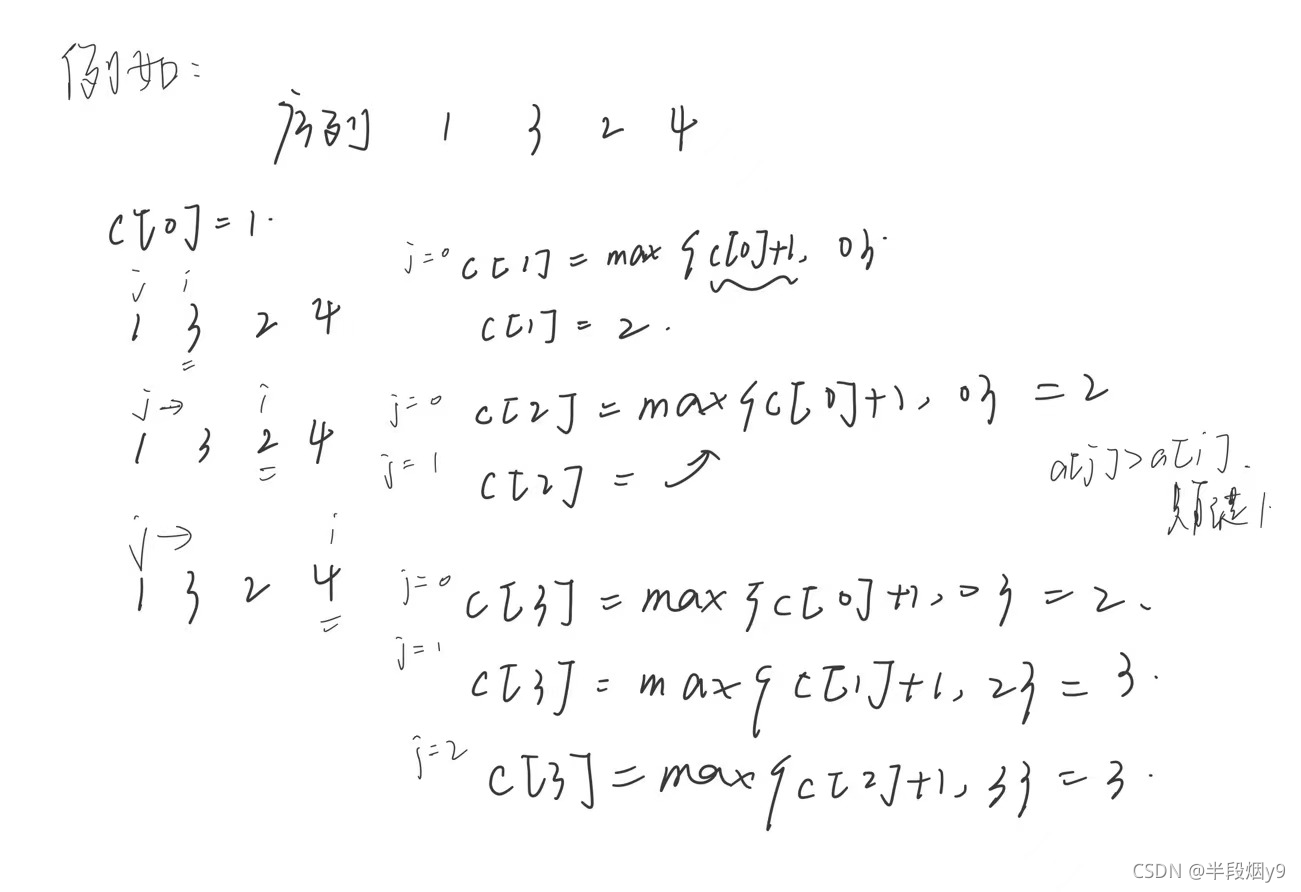 例如：
序列 1 3 2 4
c[0] = 1.
j i
1 3 2 4
j=0 c[1] = max {c[0]+1, 0}.
c[1] = 2.
j→ i
1 3 2 4
j=0 c[2] = max{c[0]+1, 0} = 2
j=1 c[2] = ↗
a[j]>a[i].
j→ i
1 3 2 4
j=0 c[3] = max{c[0]+1, 0} = 2.
j=1
c[3] = max{c[1]+1, 2} = 3.
j=2 c[3] = max{c[2]+1, 3} = 3.
CSDN @半段烟y9